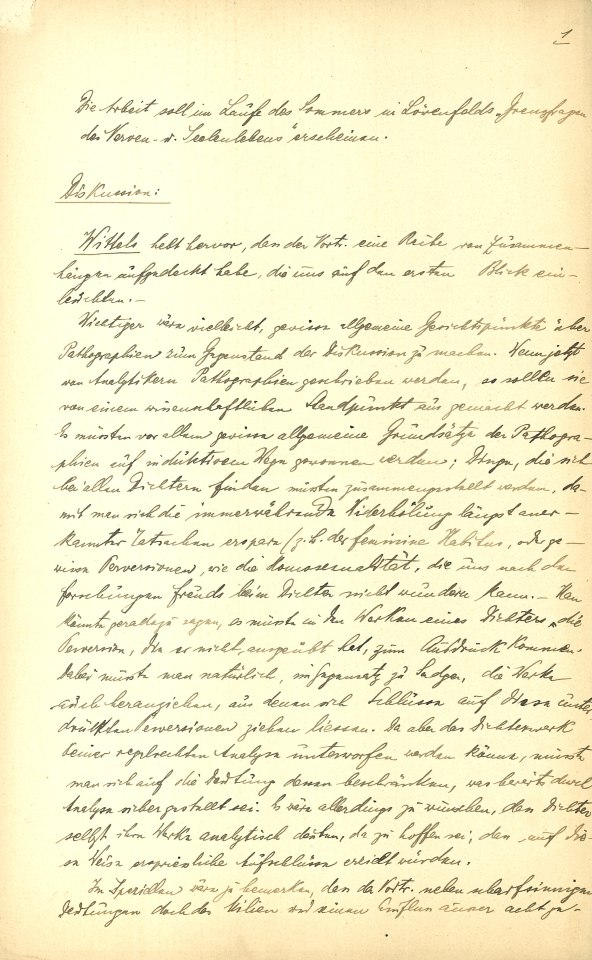 1
Die Arbeit soll im Laufe des Sommers in Lövenfelds „Grenzfragen
des Nerven- u. Seelenlebens" erscheinen.
Diskussion:
Wittels hebt hervor, dass der Vortr. eine Reihe von Zusammen-
hängen aufgedeckt habe, die uns auf den ersten Blick ein-
leuchten.-
Wichtiger wäre vielleicht, gewisse allgemeine Gesichtspunkte über
Pathographien zum Gegenstand der Diskussion zu machen. Wenn jetzt
von Analytikern Pathographien geschrieben werden, so sollen sie
von einem wissenschaftlichen Standpunkt aus gemacht werden.
Es müssten vor allem gewisse allgemeine Grundsätze der Pathogra-
phien auf induktivem Wege gewonnen werden; Dinge, die sich
bei allen Dichtern finden müssten zusammengestellt werden, da-
mit man sich die immerwährende Wiederholung längst aner-
kannter Tatsachen erspare (z.B. der feminine Habitus, oder ge-
wisse Perversionen, wie die Homosexualität, die uns nach den
Forschungen Freuds beim Dichter nicht wundern kann.- Man
könnte geradezu sagen, es müsste in den Werken eines Dichters die
Perversion, die er nicht ausgeübt hat, zum Ausdruck kommen.
Dabei müsste man natürlich, im Gegensatz zu Sadger, die Werke
auch heranziehen, aus denen sich Schlüsse auf diese unter-
drückten Perversionen ziehen liessen. Da aber das Dichterwerk
keiner regelrechten Analyse unterworfen werden könne, müsste
man sich auf die Deutung dessen beschränken, was bereits durch
Analyse sichergestellt sei. Es wäre allerdings zu wünschen, dass Dichter
selbst ihre Werke analytisch deuten, da zu hoffen sei, dass auf die-
se Weise erspriessliche Aufschlüsse erzielt würden.
Im Speziellen wäre zu bemerken, dass der Vortr. neben scharfsinnigen
Deutungen doch das Milieu und seinen Einfluss ausser acht ge-